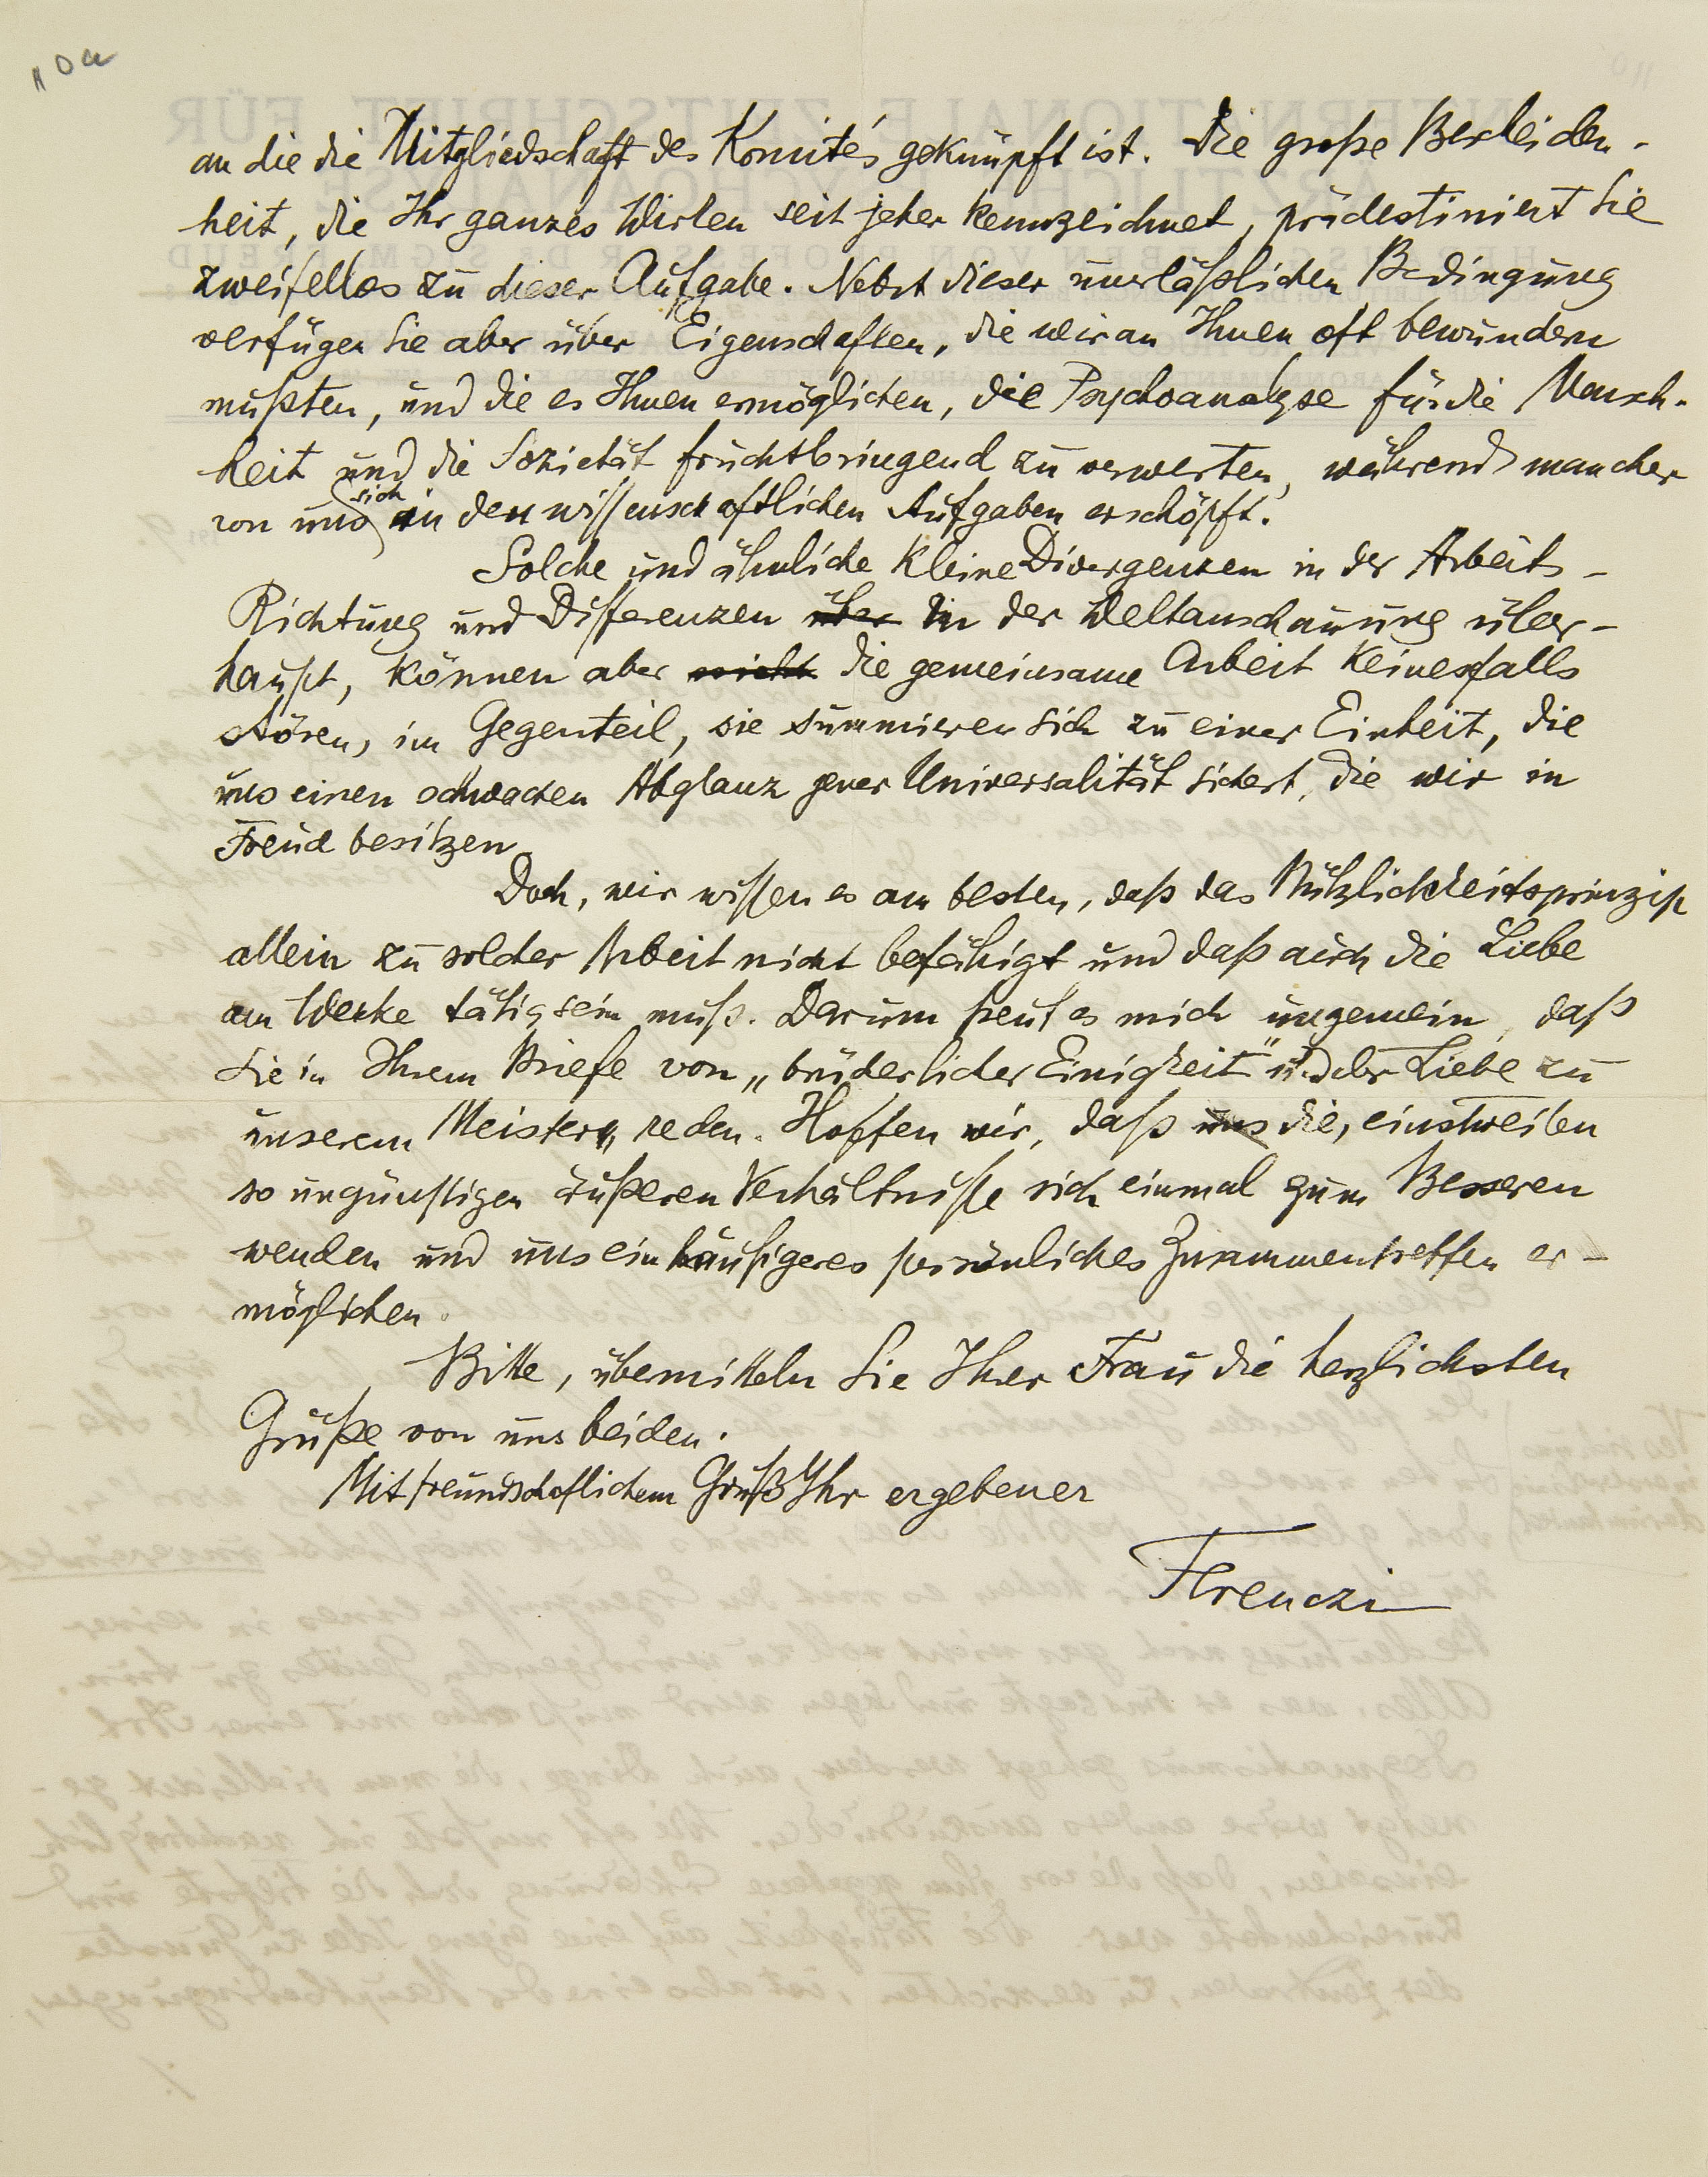 110a
an die die Mitgliedschaft des Komités geknüpft ist. Die große Bescheiden-
heit, die Ihr ganzes Wirken seit jeher kennzeichnet, prädestiniert Sie
zweifellos zu dieser Aufgabe. Nebst dieser unerläßlichen Bedingung
verfügen Sie aber über Eigenschaften, die wir an Ihnen oft bewundern
mußten, und die es Ihnen ermöglichen, die Psychoanalyse für die Mensch-
heit und die Sozietät fruchtbringend zu verwerten, während mancher
von uns sich in den wissenschaftlichen Aufgaben erschöpft.
Solche und ähnliche kleine Divergenzen in der Arbeits-
Richtung und Differenzen über in der Weltanschauung über-
haupt, können aber nicht die gemeinsame Arbeit keinesfalls
stören, im Gegenteil, sie summieren sich zu einer Einheit, die
uns einen schwachen Abglanz jener Universalität sichert, die wir in
Freud besitzen.
Doch, wir wissen es am besten, daß das Nützlichkeitsprinzip
allein zu solcher Arbeit nicht befähigt und daß auch die Liebe
am Werke tätig sein muß. Darum freut es mich ungemein, daß
Sie in Ihrem Briefe von „brüderlicher Einigkeit" und der Liebe zu
unserem Meister„ reden. Hoffen wir, daß uns die, einstweilen
so ungünstigen äußeren Verhältniße sich einmal zum Besseren
wenden und uns ein häufigeres persönliches Zusammentreffen er-
möglichen.
Bitte, übermitteln Sie Ihrer Frau die herzlichsten
Grüße von uns beiden.
Mit freundschaftlichem Gruß Ihr ergebener
Ferenczi